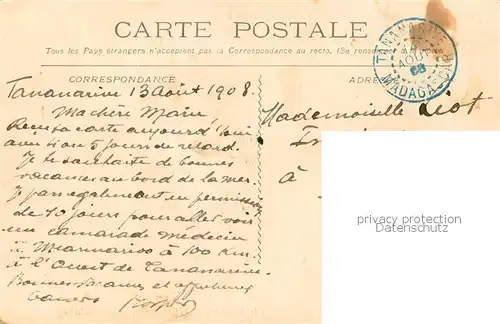 CARTE POSTALE
Tous les Pays étrangers n'acceptent pas la Correspondance au recto. (Se renseigner
CORRESPONDANCE
ADRES
TANANARIVE
AOUT
08
MADAGASCAR
Tananarive 13 Août 1908.
Ma chère Marie,
Reçu ta carte aujourd'hui
avec 4 ou 5 jours de retard.
Je te souhaite de bonnes
vacances au bord de la mer.
Je pars également en permission
de 10 jours pour aller voir
un camarade médecin
à Miarinarivo à 100 Km.
à l'Ouest de Tananarive.
Bonnes et affectueux
baisers
Mademoiselle Liot
à
privacy protection